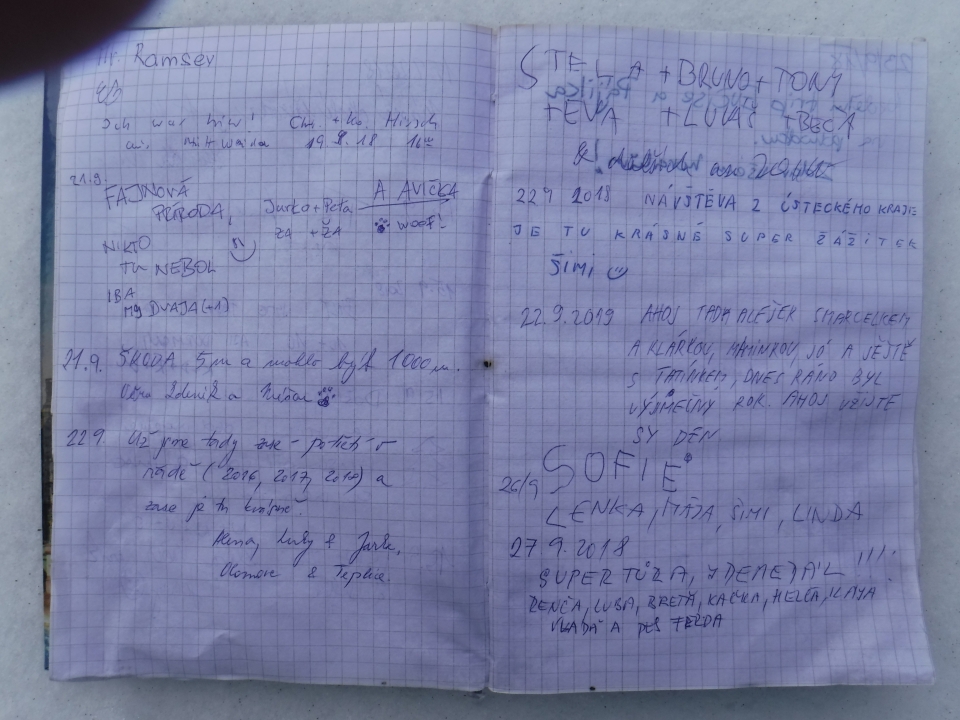 Mr. Ramsey
Ich war hier! Chr. + Ko. Hirsch
aus Mittweida 19.8.18
21.9.
FAJNOVÁ
PRÍRODA,
NIKTO
TU NEBOL
IBA
MY DVAJA (+1)
Jarko + Peťa
ZA + ZA
A AVIČKA
WOOF!
21.9. ŠKODA, 5m a mohlo být 1000m.
Zdeník a
22.9. Už jsme tady zase potřetí v
řádě (2016, 2017, 2018) a
zase je tu krásně.
Alena, & Jarka,
Olomouc & Teplice
STELA + BRUNO + TONY
+ EVA + LUKÁŠ + BECA
22.9 2018 NÁVŠTĚVA Z ÚSTECKÉHO KRAJE
JE TU KRÁSNĚ SUPER ZÁŽITEK
ŠIMI
22.9.2019 AHOJ TADY ALEŠEK S MARCELKEM
A KLÁRKOU, MAMINKOU, JÓ A JEŠTĚ
S TATÍNKEM, DNES RÁNO BYL
VÝSMĚČNÝ ROK. AHOJ UŽIJTE
SY DEN
26/9 SOFIE
LENKA, MÁJA, ŠIMI, LINDA
27 9. 2018
SUPER TÚRA, JDEME DÁL !!!
RENČA, LUBA, BRÉŤA, KAČKA, HELČA, KAJA
VLAĎA A PES